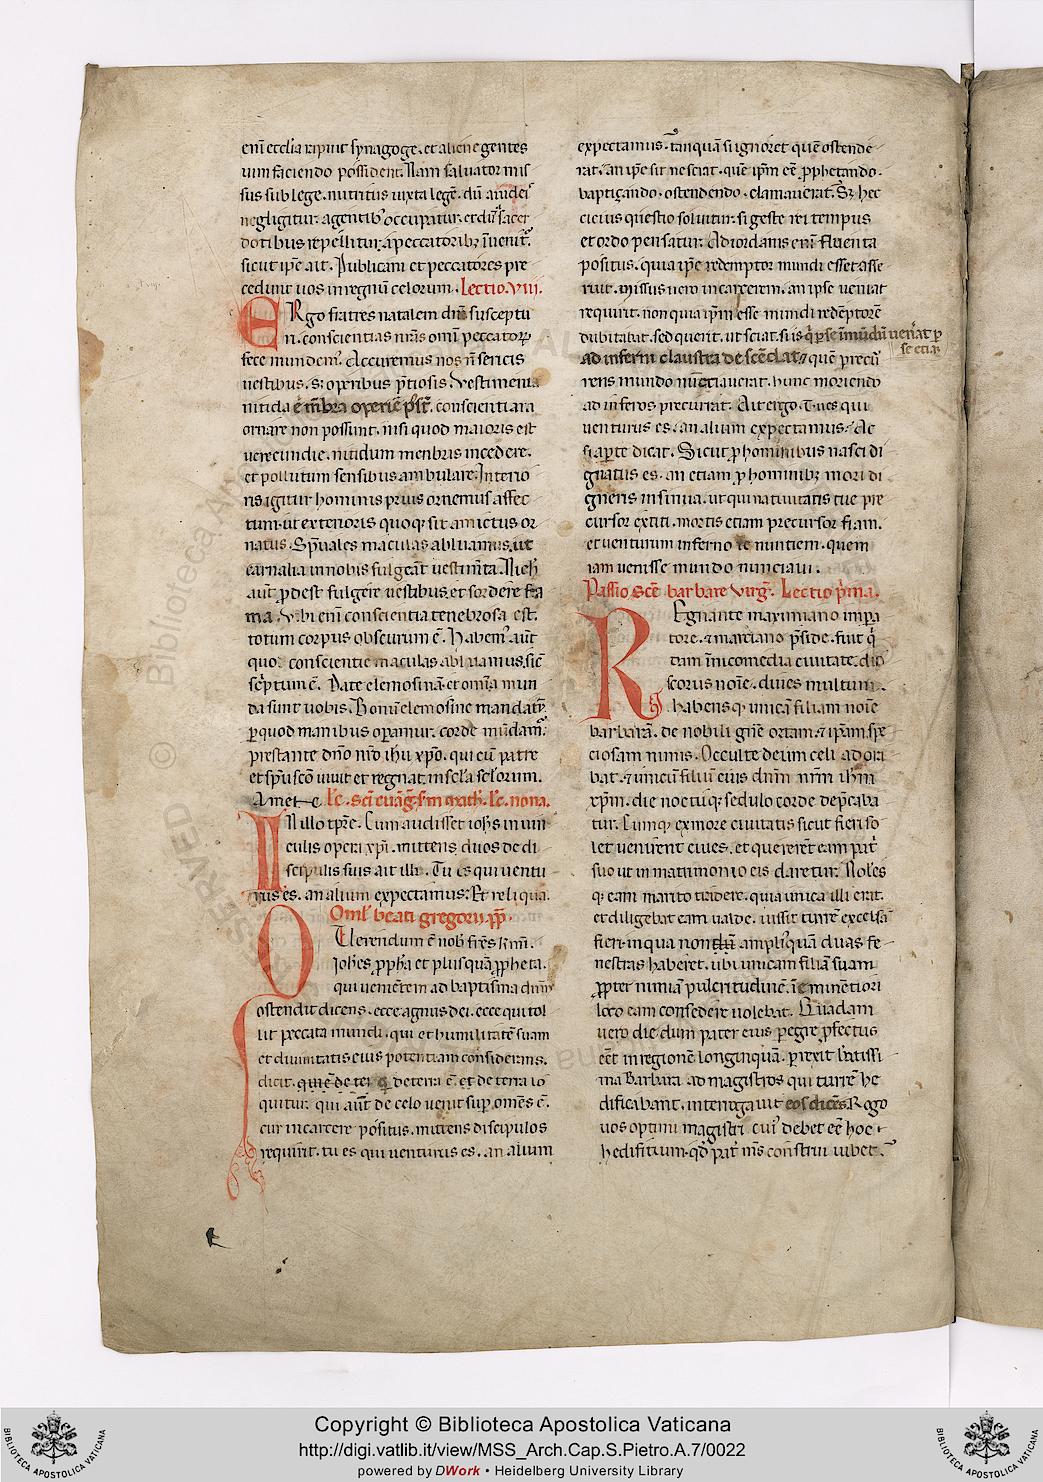 enī ecclīa rapiuit synagoge. et aliene gentes
uim faciendo possident. Nam saluator mis
sus sub lege. nutritus iuxta legē. dū a iudeis
negligitur. agentibꝰ occupatur. et dū a sacer
dotibus repellitur. a peccatoribꝫ īuenitꝰ.
sicut ip̄e ait. Publicani et peccatores pre
cedunt uos in regnū celorum. Lectio. viii.
ERgo fratres natalem dn̄i susceptu
ri. conscientias nr̄as omī peccatoꝝ
fece mundemꝰ. Accuremus nos nō sericis
uestibus. sꝫ operibus p̄tiosis. Vestimenta
nitida
conscientia
ornare non possunt. nisi quod maioris est
uerecundie. nitidum menbris incedere.
et pollutum sensibus ambulare. Interio
ris igitur hominis prius ornemus affec
tum. ut exterioris quoqꝫ sit amictus or
natus. Sp̄uales maculas abluamus. ut
carnalia in nobis fulgeāt uestim̄ta. Nich̄
aut̄ ꝓdest fulgere uestibus. et sordere fa
ma. Vbi enī conscientia tenebrosa est.
totum corpus obscurum ē. Habemꝰ aut̄
quo conscientie maculas abluamus. sic̄
sc̄ptum ē. Date elemosinā. et om̄ia mun
da sunt uobis. Bonū elemosine mandatū.
ꝑ quod manibus oꝑamur. corde mūdamꝰ.
prestante dn̄o nr̄o ih̄u xp̄o. qui cū patre
et sp̄u sc̄o uiuit et regnat in sc̄la sc̄lorum.
Amen.
Lc̄. sc̄i euāg. sm̄ math̄. Lc̄. nona.
IN illo tp̄re. Cum audisset ioh̄s in uin
culis opera xp̄i. mittens duos de di
scipulis suis ait illi. Tu es qui ventu
rus es. an alium expectamus. Et reliqua.
Oml̄ beati gregorii. pp̄.
QVerendum ē nob̄ fr̄es kmi.
ioh̄es ꝓph̄a et plus quā ꝓpheta.
qui uenientem ad baptisma dn̄m
ostendit dicens. ecce agnus dei. ecce qui tol
lit peccata mundi. qui et humilitatē suam
et diuinitatis eius potentiam considerans.
dicit. qui
de terra ē. et de terra lo
quitur. qui aut̄ de celo uenit supͣ omēs ē.
cur in carcere positus. mittens discipulos
requirit. tu es qui uenturus es. an alium
expectamus. tanquā si ignoret quē ostende
rat. an ip̄e sit nesciat. quē ip̄m eē ꝓphetando.
baptiçando. ostendendo. clamauerat. Sꝫ hec
cicius questio soluitur. si geste rei tempus
et ordo pensatur. Ad iordanis enī fluenta
positus. quia ip̄e redemptor mundi esset asse
ruit. missus uero in carcerem. an ipse ueniat
requirit. non quia ip̄m esse mundi redēptorē
dubitabat. sed querit. ut sciat. si is q̇ ꝑ se ī mūdū uenꝰat ꝑ
se etiā
ad inferni claustra descēdat. quē precur
rens mundo nūciauerat. hunc moriendo
ad inferos precurrat. Ait ergo. Tu es qui
uenturus es. an alium expectamus. Ac
si aꝑte dicat. Sicut ꝓ hominibus nasci di
gnatus es. an etiam ꝓ hominibꝫ mori di
gneris insinua. ut qui natiuitatis tue pre
cursor extiti. mortis etiam precursor fiam.
et uenturum inferno te nuntiem. quem
iam uenisse mundo nunciaui.
Passio sc̄e barbare virḡ. Lectio pͥma.
REgnante maximiano impa
tore. ⁊ marciano p̄side. fuit q̇
dam ī nicomedia ciuitate. dio
scorus noīe. diues multum.
habensqꝫ unicā filiam noīe
barbarā. de nobili gn̄e ortam. ⁊ ip̄am spe
ciosam nimis. Occulte deum celi adora
bat. ⁊ unicū filiū eius dn̄m nr̄m ih̄m
xp̄m. die noctuqꝫ sedulo corde dep̄caba
tur. Cumqꝫ ex more ciuitatis sicut fieri so
let uenirent ciues. et quererēt eam patͥ
suo ut in matrimonio eis daretur. Noles
qꝫ eam marito tradere. quia unica illi erat.
et diligebat eam ualde. iussit turrē excelsā
fieri. in qua non
ampliꝰ quā duas fe
nestras haberet. ubi unicam filiā suam
ꝓpter nimiā pulcritudinē. ī eminētiori
loco eam consedere uolebat. Quadam
uero die dum pater eius ꝑegre ꝓfectus
eēt in regionē longinquā. ꝑrexit b̄atissi
ma Barbara ad magistros qui turrē he
dificabant. interrogauit eos dicēs. Rogo
uos optimi magistri. cui debet eē hoc
hedifitium. qđ patͥ ms̄ construi iubet.
Copyright © Biblioteca Apostolica Vaticana
http://digi.vatlib.it/view/MSS_Arch.Cap.S.Pietro.A.7/0022
powered by DWork • Heidelberg University Library
BIBLIOTECA APOSTOLICA VATICANA
BIBLIOTECA APOSTOLICA VATICANA